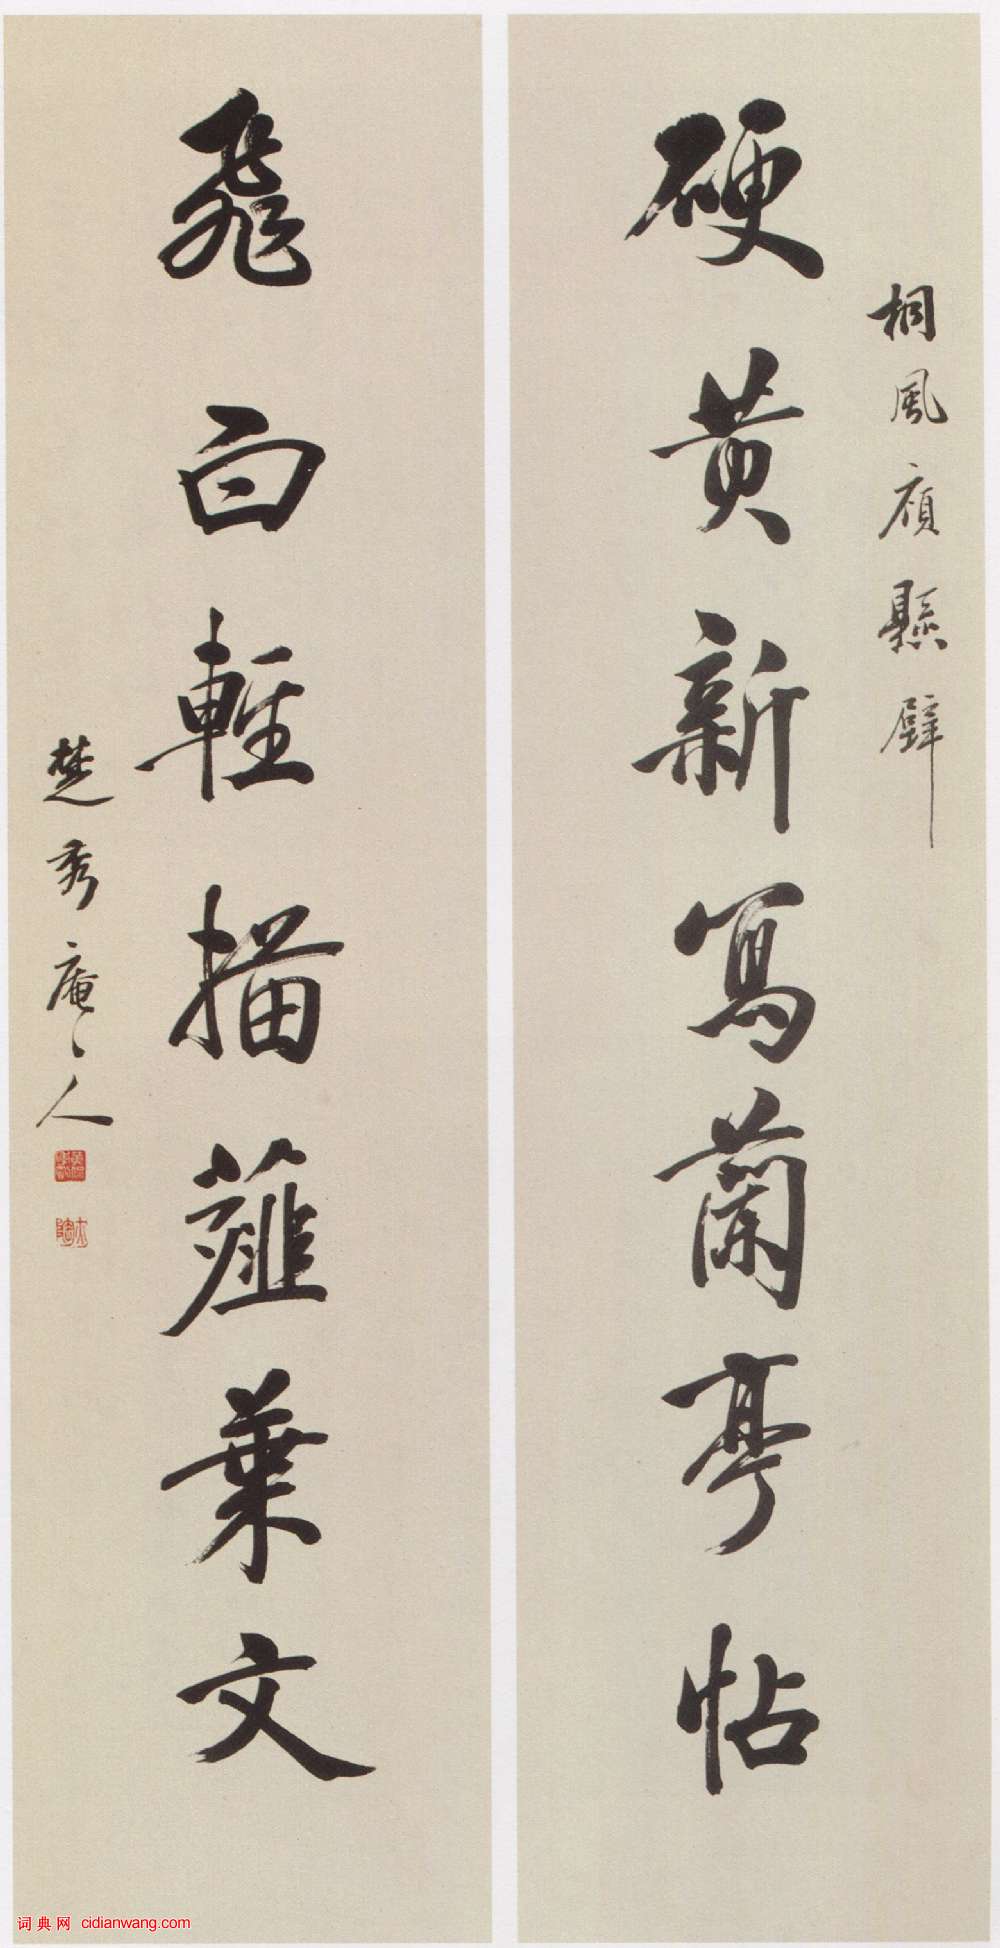 桐風廎懸壁
硬黃新寫蘭亭帖
飛白輕描薤葉文
楚秀庵〻人
词典网 cidianwang.com